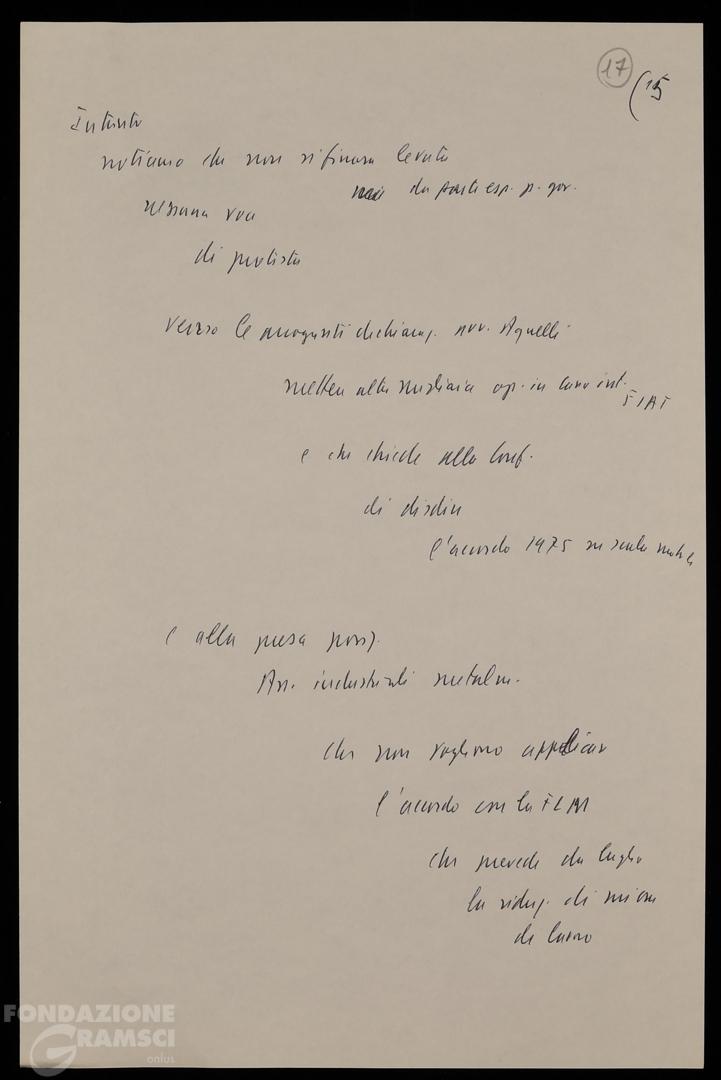 17
(15
Intanto
notiamo che non si finora levata
da parte esp. p. gov.
nessuna voce
di protesta
verso le arroganti dichiaraz. avv. Agnelli
mettere alla cassa int.
FIAT
e che chiede alla Conf.
di disdire
l'accordo 1975 su scala mobile
e alla presa posiz.
Ass. industriali metalm.
che non vogliono applicare
l'accordo con la FLM
che prevede da luglio
la riduz. di
di lavoro
FONDAZIONE
GRAMSCI
onlus